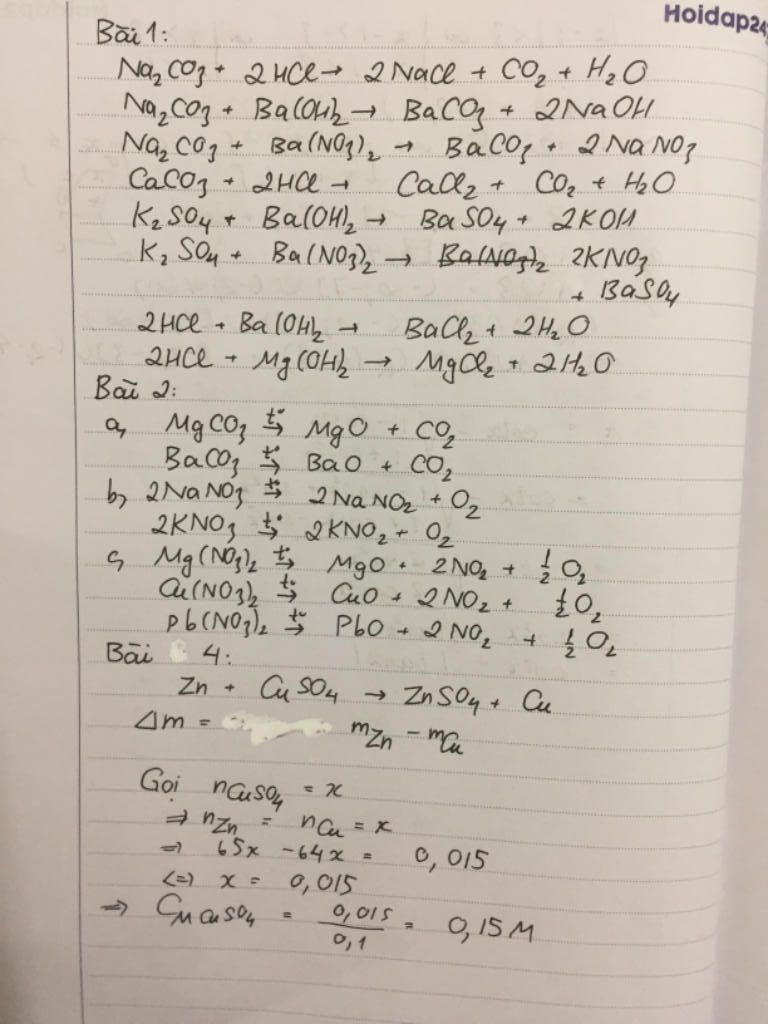 Hoidap24
Bài 1:
Na₂CO₃ + 2HCl → 2NaCl + CO₂ + H₂O
Na₂CO₃ + Ba(OH)₂ → BaCO₃ + 2NaOH
Na₂CO₃ + Ba(NO₃)₂ → BaCO₃ + 2NaNO₃
CaCO₃ + 2HCl → CaCl₂ + CO₂ + H₂O
K₂SO₄ + Ba(OH)₂ → BaSO₄ + 2KOH
K₂SO₄ + Ba(NO₃)₂ → Ba(NO₃)₂ 2KNO₃
+ BaSO₄
2HCl + Ba(OH)₂ → BaCl₂ + 2H₂O
2HCl + Mg(OH)₂ → MgCl₂ + 2H₂O
Bài 2:
a, MgCO₃ t°→ MgO + CO₂
BaCO₃ t°→ BaO + CO₂
b, 2NaNO₃ t°→ 2NaNO₂ + O₂
2KNO₃ t°→ 2KNO₂ + O₂
c, Mg(NO₃)₂ t°→ MgO + 2NO₂ + 1/2 O₂
Cu(NO₃)₂ t°→ CuO + 2NO₂ + 1/2 O₂
Pb(NO₃)₂ t°→ PbO + 2NO₂ + 1/2 O₂
Bài 4:
Zn + CuSO₄ → ZnSO₄ + Cu
Δm = mZn - mCu
Gọi nCuSO₄ = x
⇒ nZn = nCu = x
⇒ 65x - 64x = 0,015
<=> x = 0,015
⇒ CM CuSO₄ = 0,015/0,1 = 0,15M